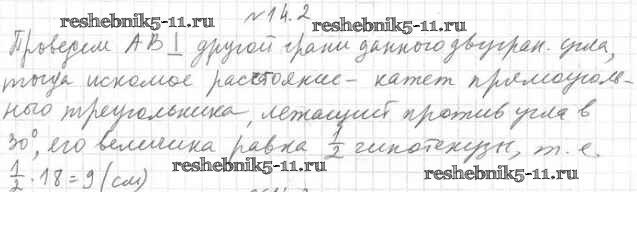 №14.2
reshebnik5-11.ru reshebnik5-11.ru
Проведем AB ⊥ другой грани данного двугран. угла,
тогда искомое расстояние – катет прямоуголь-
ного треугольника, лежащий против угла в
30°, его величина равна 1/2 гипотенузы, т.е.
reshebnik5-11.ru reshebnik5-11.ru
1/2 · 18 = 9 (см)